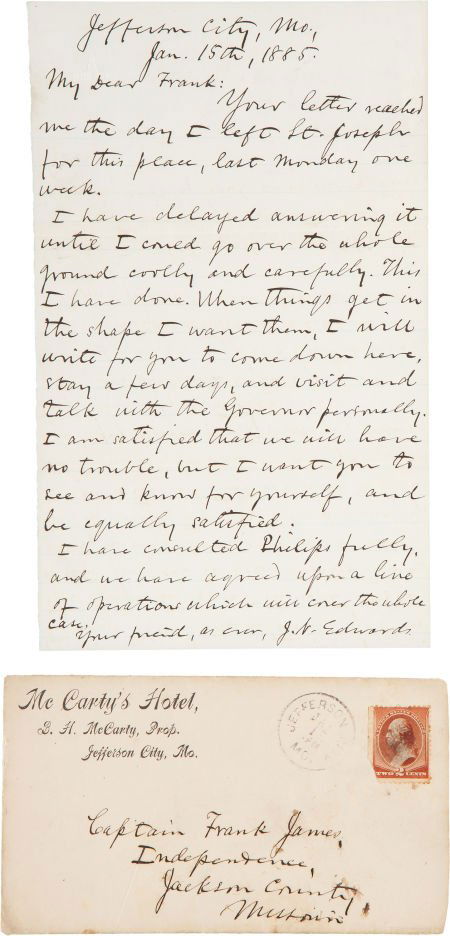 Jefferson City, Mo.,
Jan. 15th, 1885.
My Dear Frank:
Your letter reached
me the day I left St. Joseph
for this place, last Monday one
week.
I have delayed answering it
until I could go over the whole
ground coolly and carefully. This
I have done. When things get in
the shape I want them, I will
write for you to come down here,
stay a few days, and visit and
talk with the Governor personally.
I am satisfied that we will have
no trouble, but I want you to
see and know for yourself, and
be equally satisfied.
I have consulted Philips fully,
and we have agreed upon a line
of operations which will cover the whole
case.
Your friend, as ever, J.N. Edwards.
Mc Carty's Hotel,
B. H. McCarty, Prop.
Jefferson City, Mo.
JEFFERSON
MO.
TWO 2 CENTS
Captain Frank James,
Independence,
Jackson County,
Missouri